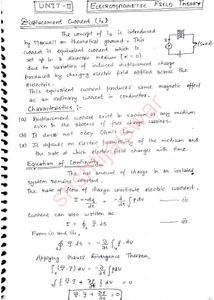 UNIT-II ELECTROMAGNETIC FIELD THEORY
Displacement Current (Id)
The concept of Id is introduced
by Maxwell on theoretical ground. This
current is equivalent current which is
set up in a dielectric medium (σ = 0)
due to variation of induced displacement charge
produced by changing electric field applied across the
dielectric.
This equivalent current produces same magnetic effect
as an ordinary current in conductor.
Characteristics :-
(a) Displacement current exist in vacuum or any medium
even in the absence of free charge carriers.
(b) It does not obey Ohm's law.
(c) It depends on electric permittivity of the medium and
the rate at which electric field changes with time.
Equation of Continuity
The net amount of charge in an isolated
system remains constant.
The rate of flow of charge constitute electric current.
I = -dq/dt = -d/dt ∫ ρ dv — (i)
Current can also written as
I = ∮ J̄. ds — (ii)
From (i) and (ii),
∮ J̄. ds = -∂/∂t ∫ ρ. dv
Applying Gauss's Divergence Theorem,
∫ (∇̄. J̄) dv = -∂/∂t ∫ ρ dv
∫ (∇̄. J̄ + ∂ρ/∂t) dv = 0
∇̄. J̄ + ∂ρ/∂t = 0